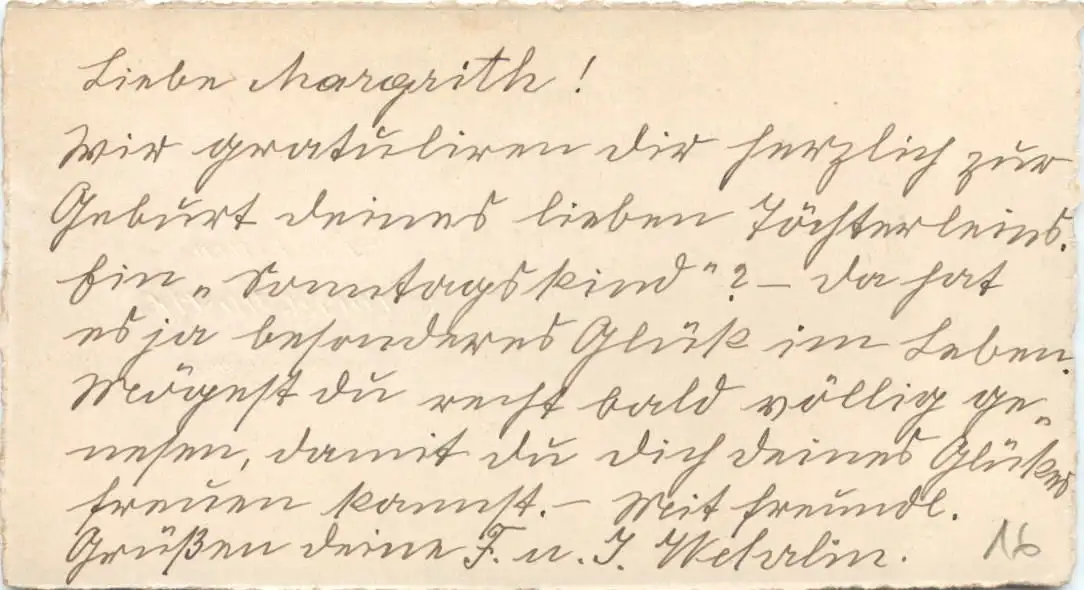 Liebe Margrith!
Wir gratuliren dir herzlich zur
Geburt deines lieben Töchterleins.
Ein „Sonntagskind"? – Da hat
es ja besonderes Glük im Leben.
Mögest du recht bald völlig ge„
nesen, damit du dich deines Glükes
freuen kannst. – Mit freundl.
Grüßen deine F. u. J. Wehrlin.
16